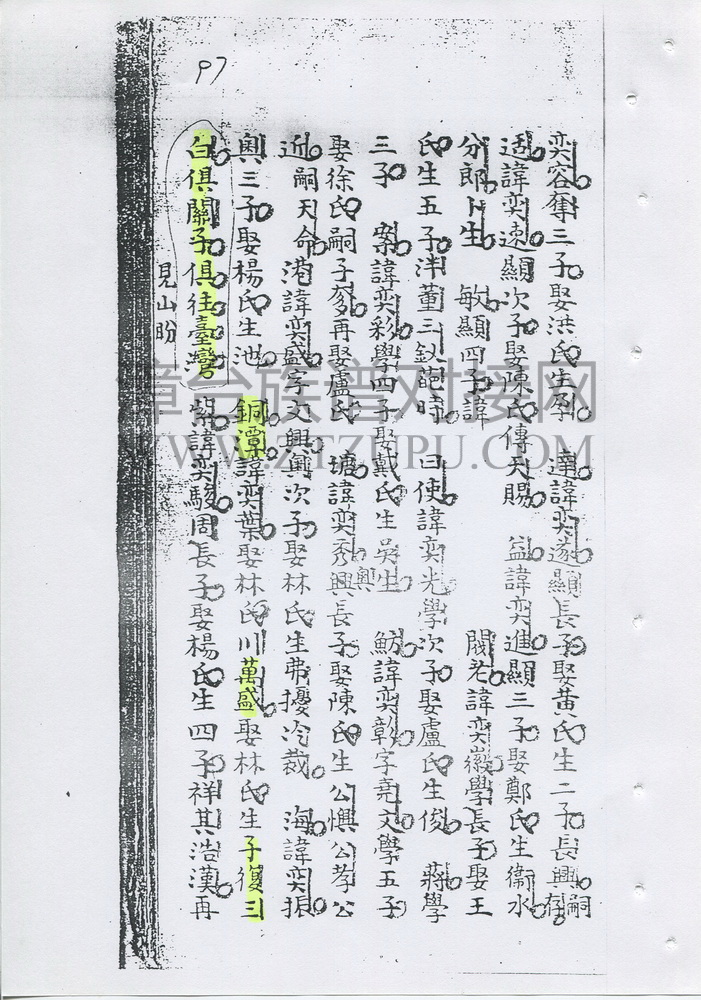 97
奕容奪三子娶洪氏生孕 達諱奕遂顯長子娶黃氏生二子長興存嗣
适諱奕速顯次子娶陳氏傳天賜 益諱奕進顯三子娶鄭氏生衞水
分郎卜生 敏顯四子諱 閣老諱奕徽學長子娶王
氏生五子泮董三釵葩時 日使諱奕光學次子娶盧氏生俊 蔣學
三子 案諱奕彩學四子娶戴氏生吳生 魴諱奕彰字堯文學五子
娶徐氏嗣子爹再娶盧氏 塘諱奕秀興長子娶陳氏生公懊公孝公
近嗣天命 港諱奕盛字文興輿次子娶林氏生弗擾冷裁 海諱奕振
輿三子娶楊氏生池 銅潭諱奕葉娶林氏川萬盛娶林氏生子復三
白俱關子俱往臺灣 柴諱奕駿周長子娶楊氏生四子祥其浩漢再
見山盼
漳台族谱对接网
WWW.ZTZUPU.COM